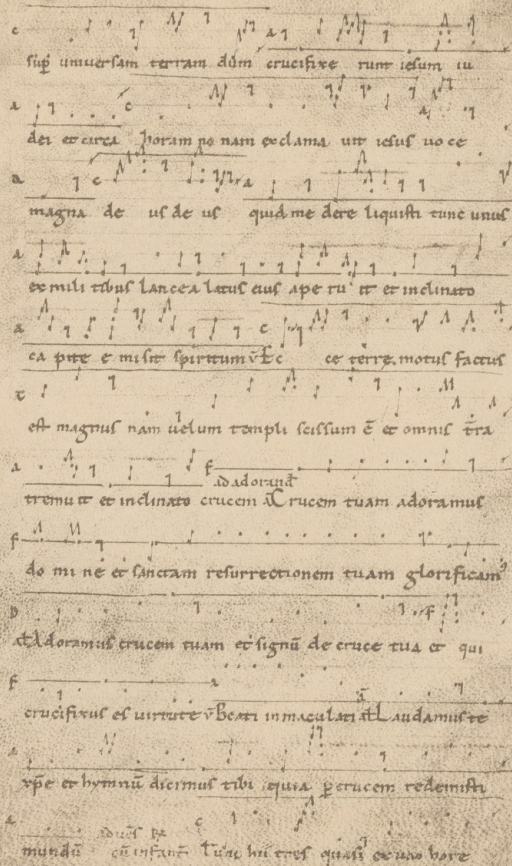 sup universam terram dum crucifixe runt iesum iu
dei et circa horam no nam exclama vit iesus uo ce
magna de us de us quid me dere liquisti tunc unus
ex mili tibus lancea latus eius ape ru it et inclinato
ca pite e misit spiritum v̄ Ec ce terre motus factus
est magnus nam uelum templi scissum ē et omnis tr̄a
ad adorand̄
tremuit et inclinato crucem a Crucem tuam adoramus
do mi ne et sanctam resurrectionem tuam glorificam⁹
a Adoramus crucem tuam et signū de cruce tua et qui
crucifixus es uirtute v̄ Beati inmaculati a Laudamus te
xpē et hymnū dicimus tibi quia p crucem redemisti
mundū Tunc hii tres quasi ex uno hore